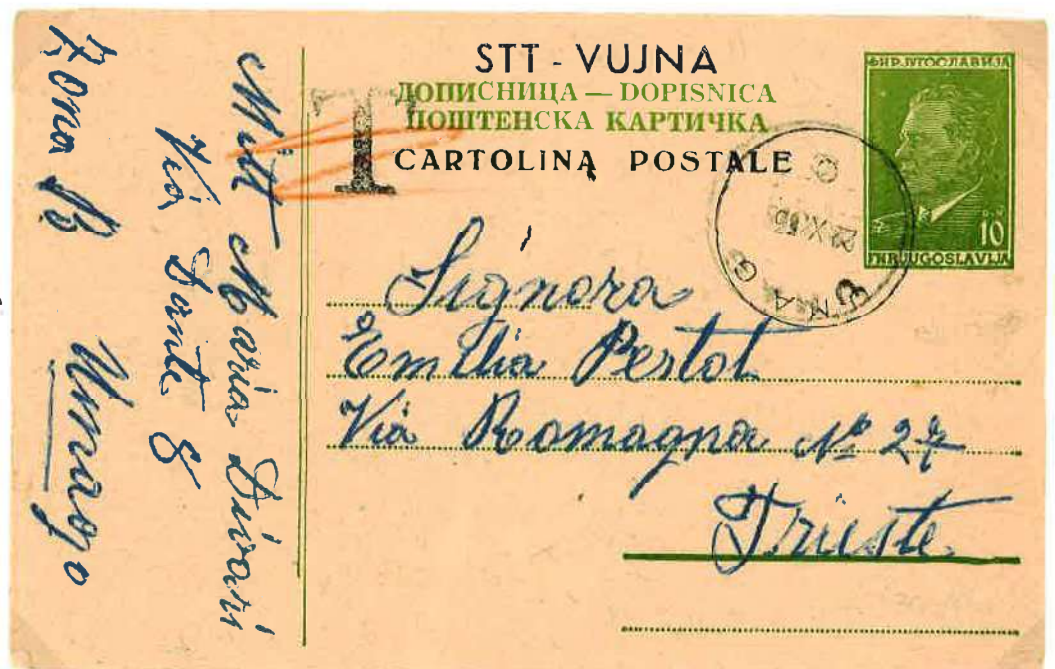 STT - VUJNA
ДОПИСНИЦА — DOPISNICA
ПОШТЕНСКА КАРТИЧКА
CARTOLINA POSTALE
T
ФНР ЈУГОСЛАВИЈА
10
FNR JUGOSLAVIJA
UMAG
Signora
Emilia Pertot
Via Romagna Nº 27
Trieste
Mitt Maria
Via Dante 8
Zona B Umago